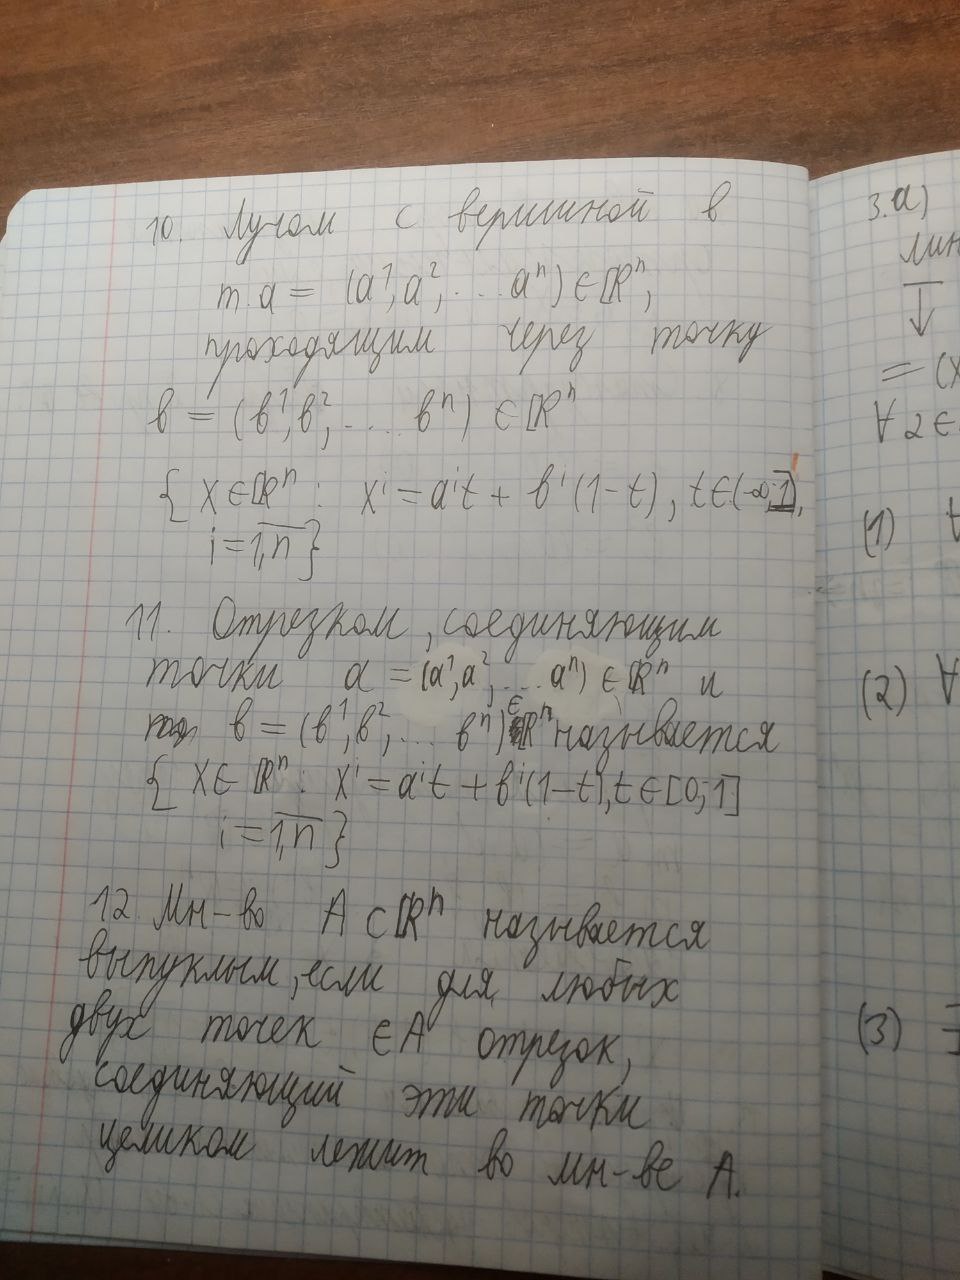 10. Лучом с вершиной в
т. a = (a¹, a², ... aⁿ) ∈ ℝⁿ,
проходящим через точку
в = (в¹, в², .... вⁿ) ∈ ℝⁿ
{ x ∈ ℝⁿ : xⁱ = aⁱt + вⁱ(1-t), t ∈ (-∞; 1],
i = \overline{1,n} }
11. Отрезком, соединяющим
точки a = (a¹, a², ... aⁿ) ∈ ℝⁿ и
в = (в¹, в², ... вⁿ) ∈ ℝⁿ называется
{ x ∈ ℝⁿ : xⁱ = aⁱt + вⁱ(1-t), t ∈ [0; 1]
i = \overline{1,n} }
12. Мн-во A ⊂ ℝⁿ называется
выпуклым, если для любых
двух точек ∈ A отрезок,
соединяющий эти точки
целиком лежит во мн-ве A.
3. a)
лин
↓
= (x
∀ 2 ∈
(1)
(2) ∀
(3)